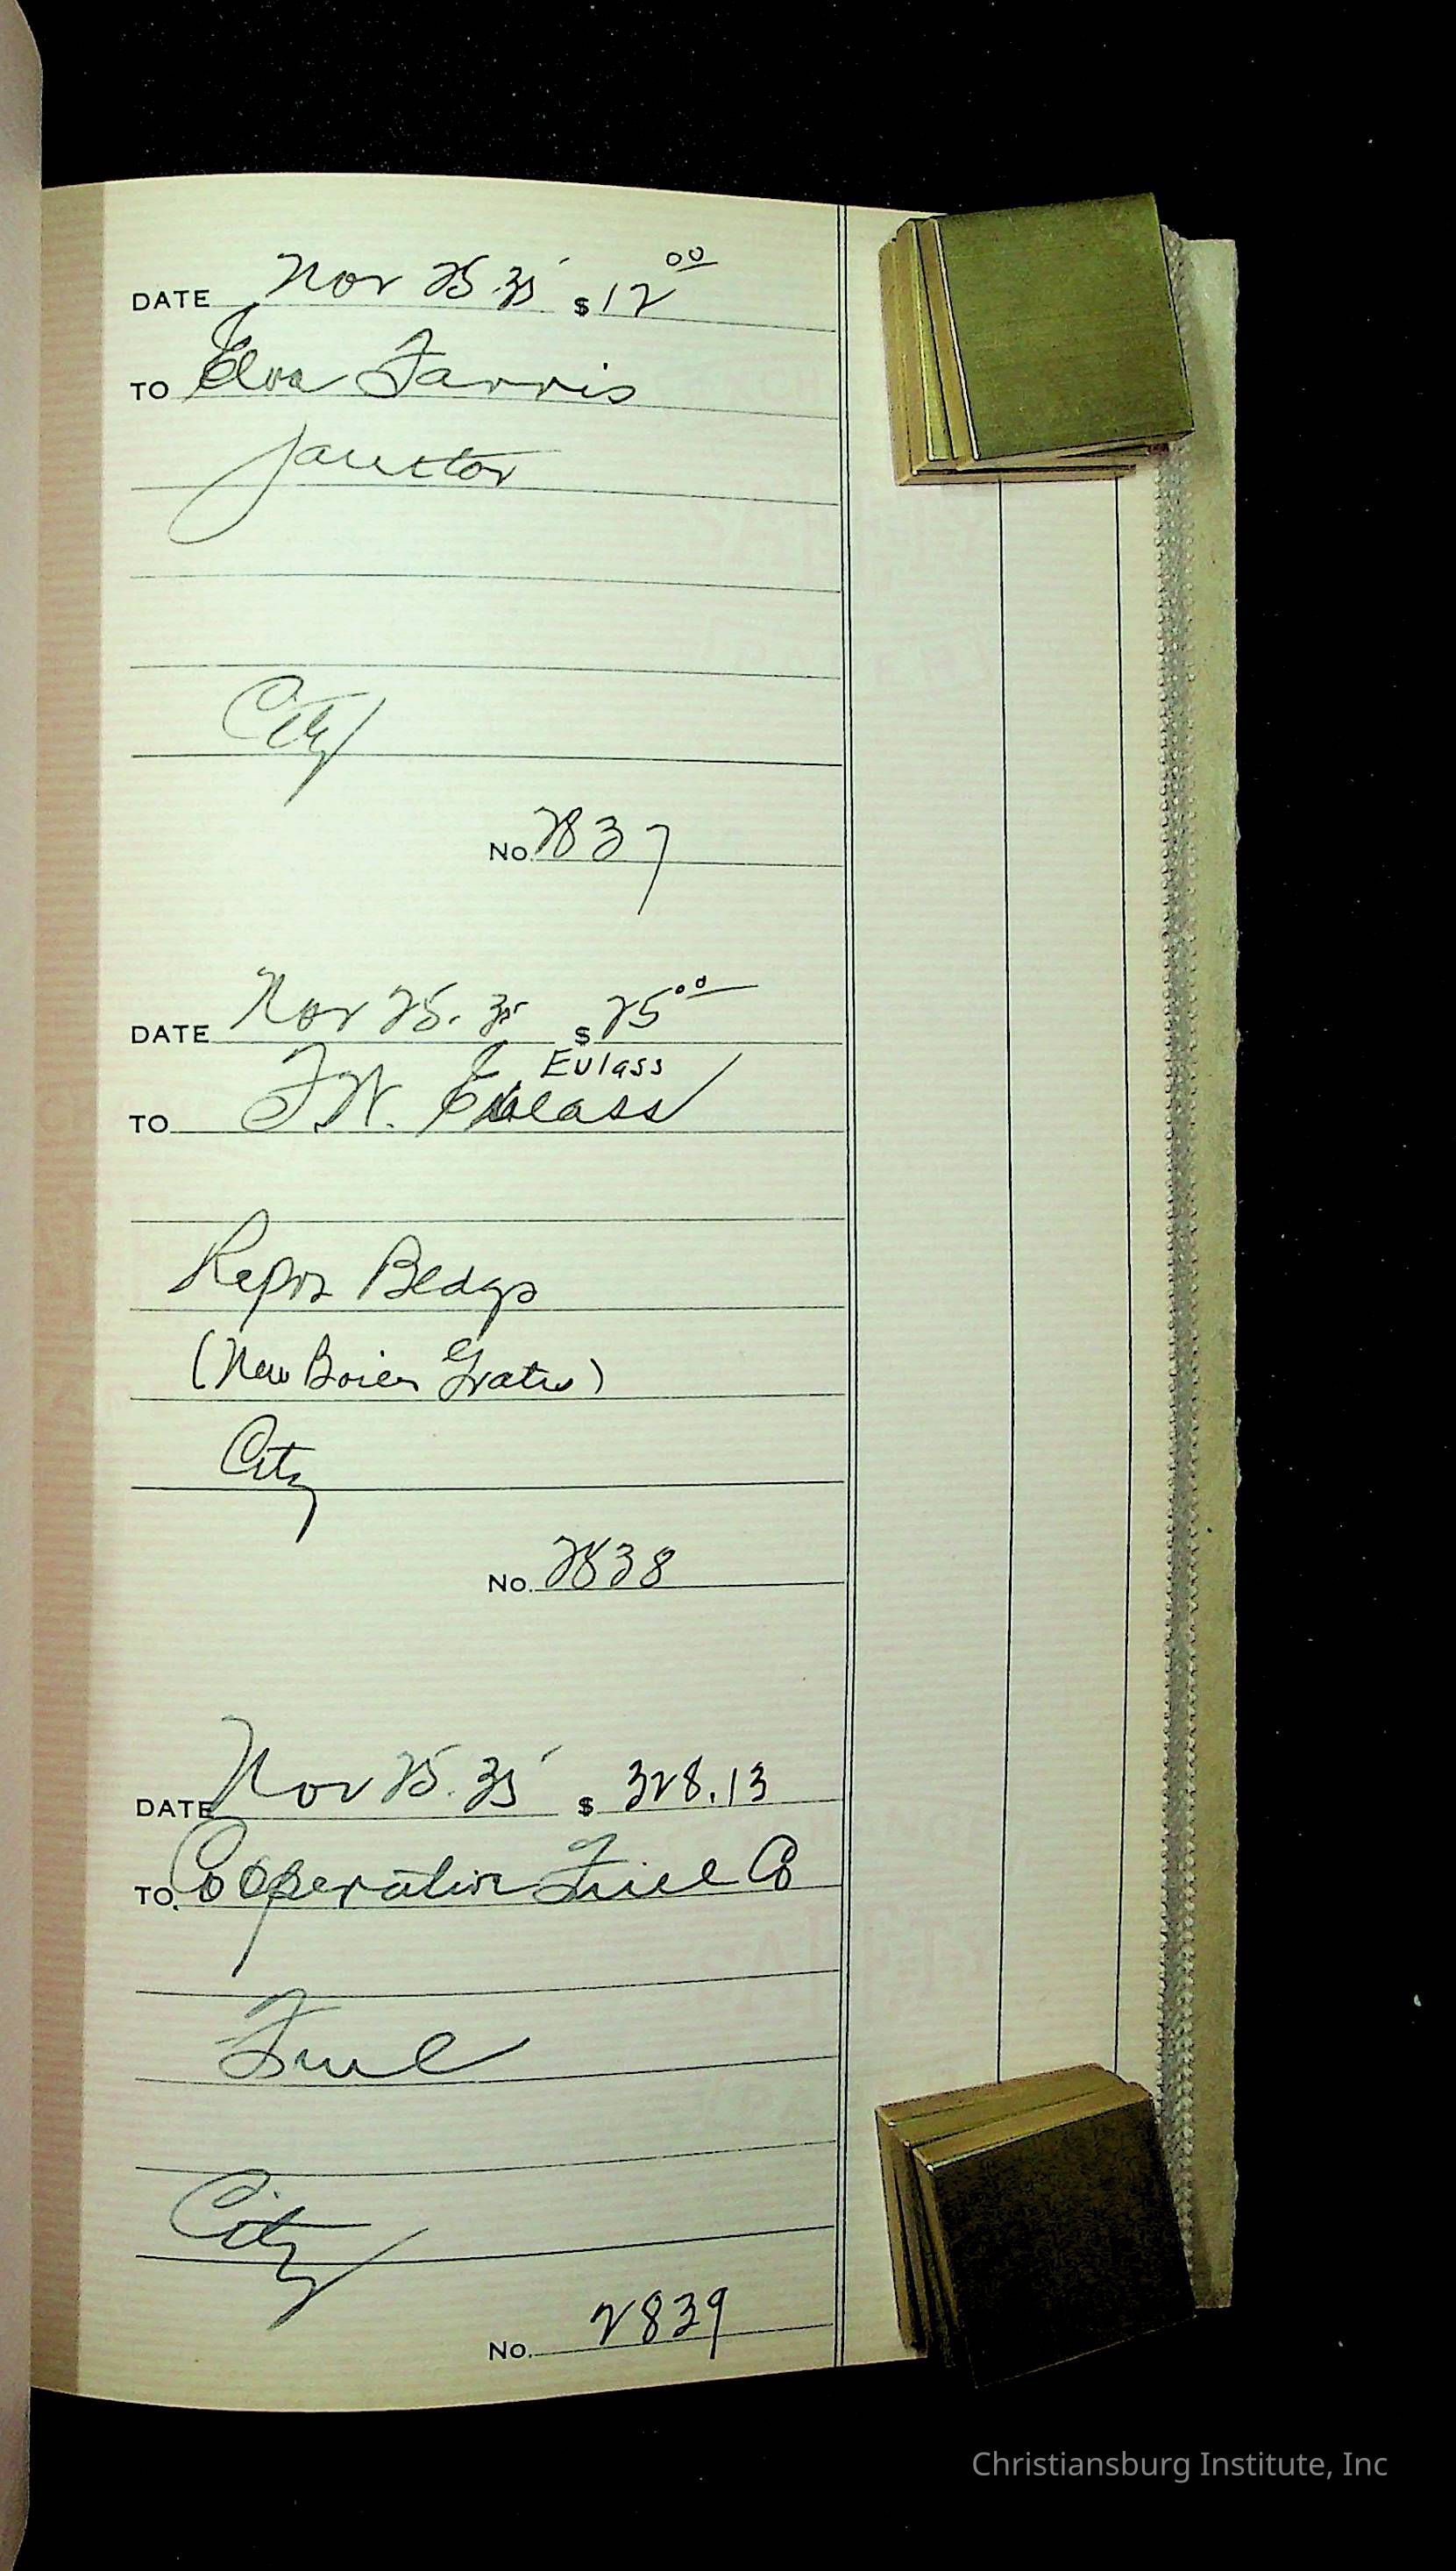 DATE Nov 25. 35 $ 12 00
TO Elva Farris
Janitor
City
No. 2837
DATE Nov 25. 35 $ 25 00
Eulass
TO F.W. Eulass
Repirs Bldgs
(New Boiler Grates)
City
No. 2838
DATE Nov 25. 35 $ 328.13
TO Cooperative Fuel Co
Fuel
City
No. 2839
Christiansburg Institute, Inc